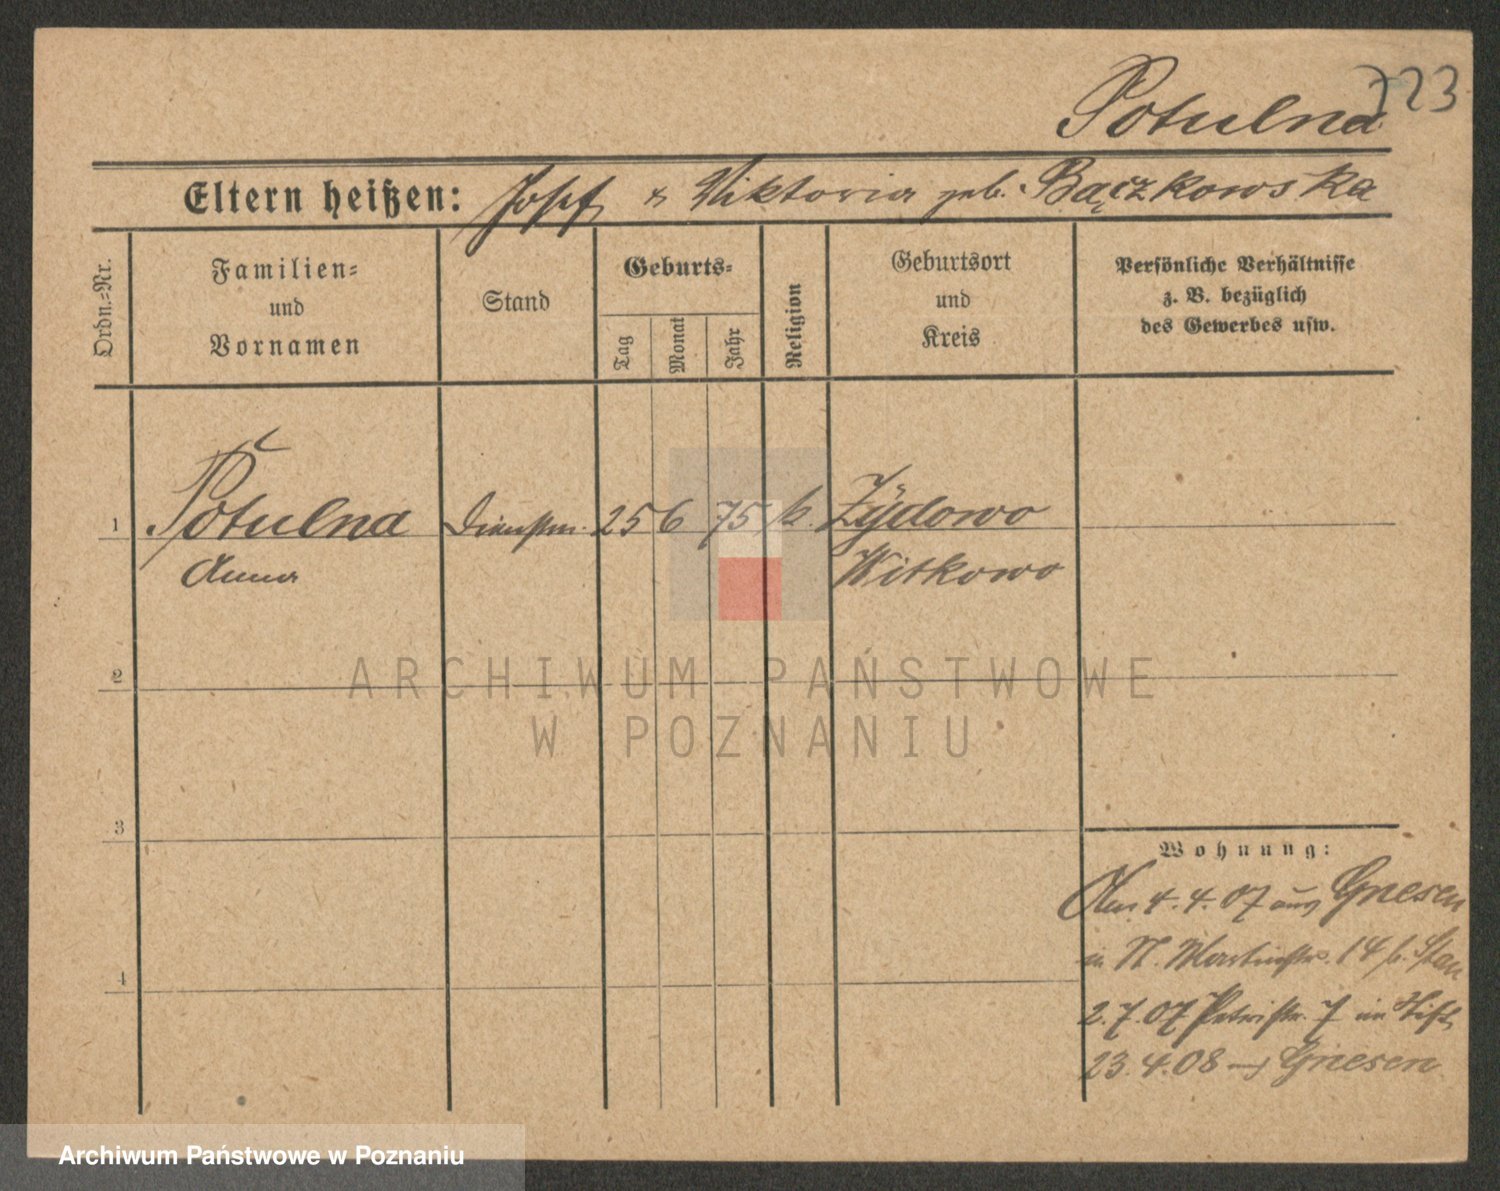 723
Potulna
Eltern heißen: Josef & Viktoria geb. Bączkowska
Ordn.=Nr.
Familien=
und
Vornamen
Stand
Geburts=
Tag
Monat
Jahr
Religion
Geburtsort
und
Kreis
Persönliche Verhältnisse
z. B. bezüglich
des Gewerbes usw.
1 Potulna Dienstm. 25 6 75 k. Żydowo
Anna Witkowo
2
3
4
Wohnung:
Am 4.4.07 aus Gnesen
in St. Martinstr. 14 b.
2.7.07 Petristr. 7 im Stift
23.4.08 Gnesen
ARCHIWUM PAŃSTWOWE
W POZNANIU
Archiwum Państwowe w Poznaniu